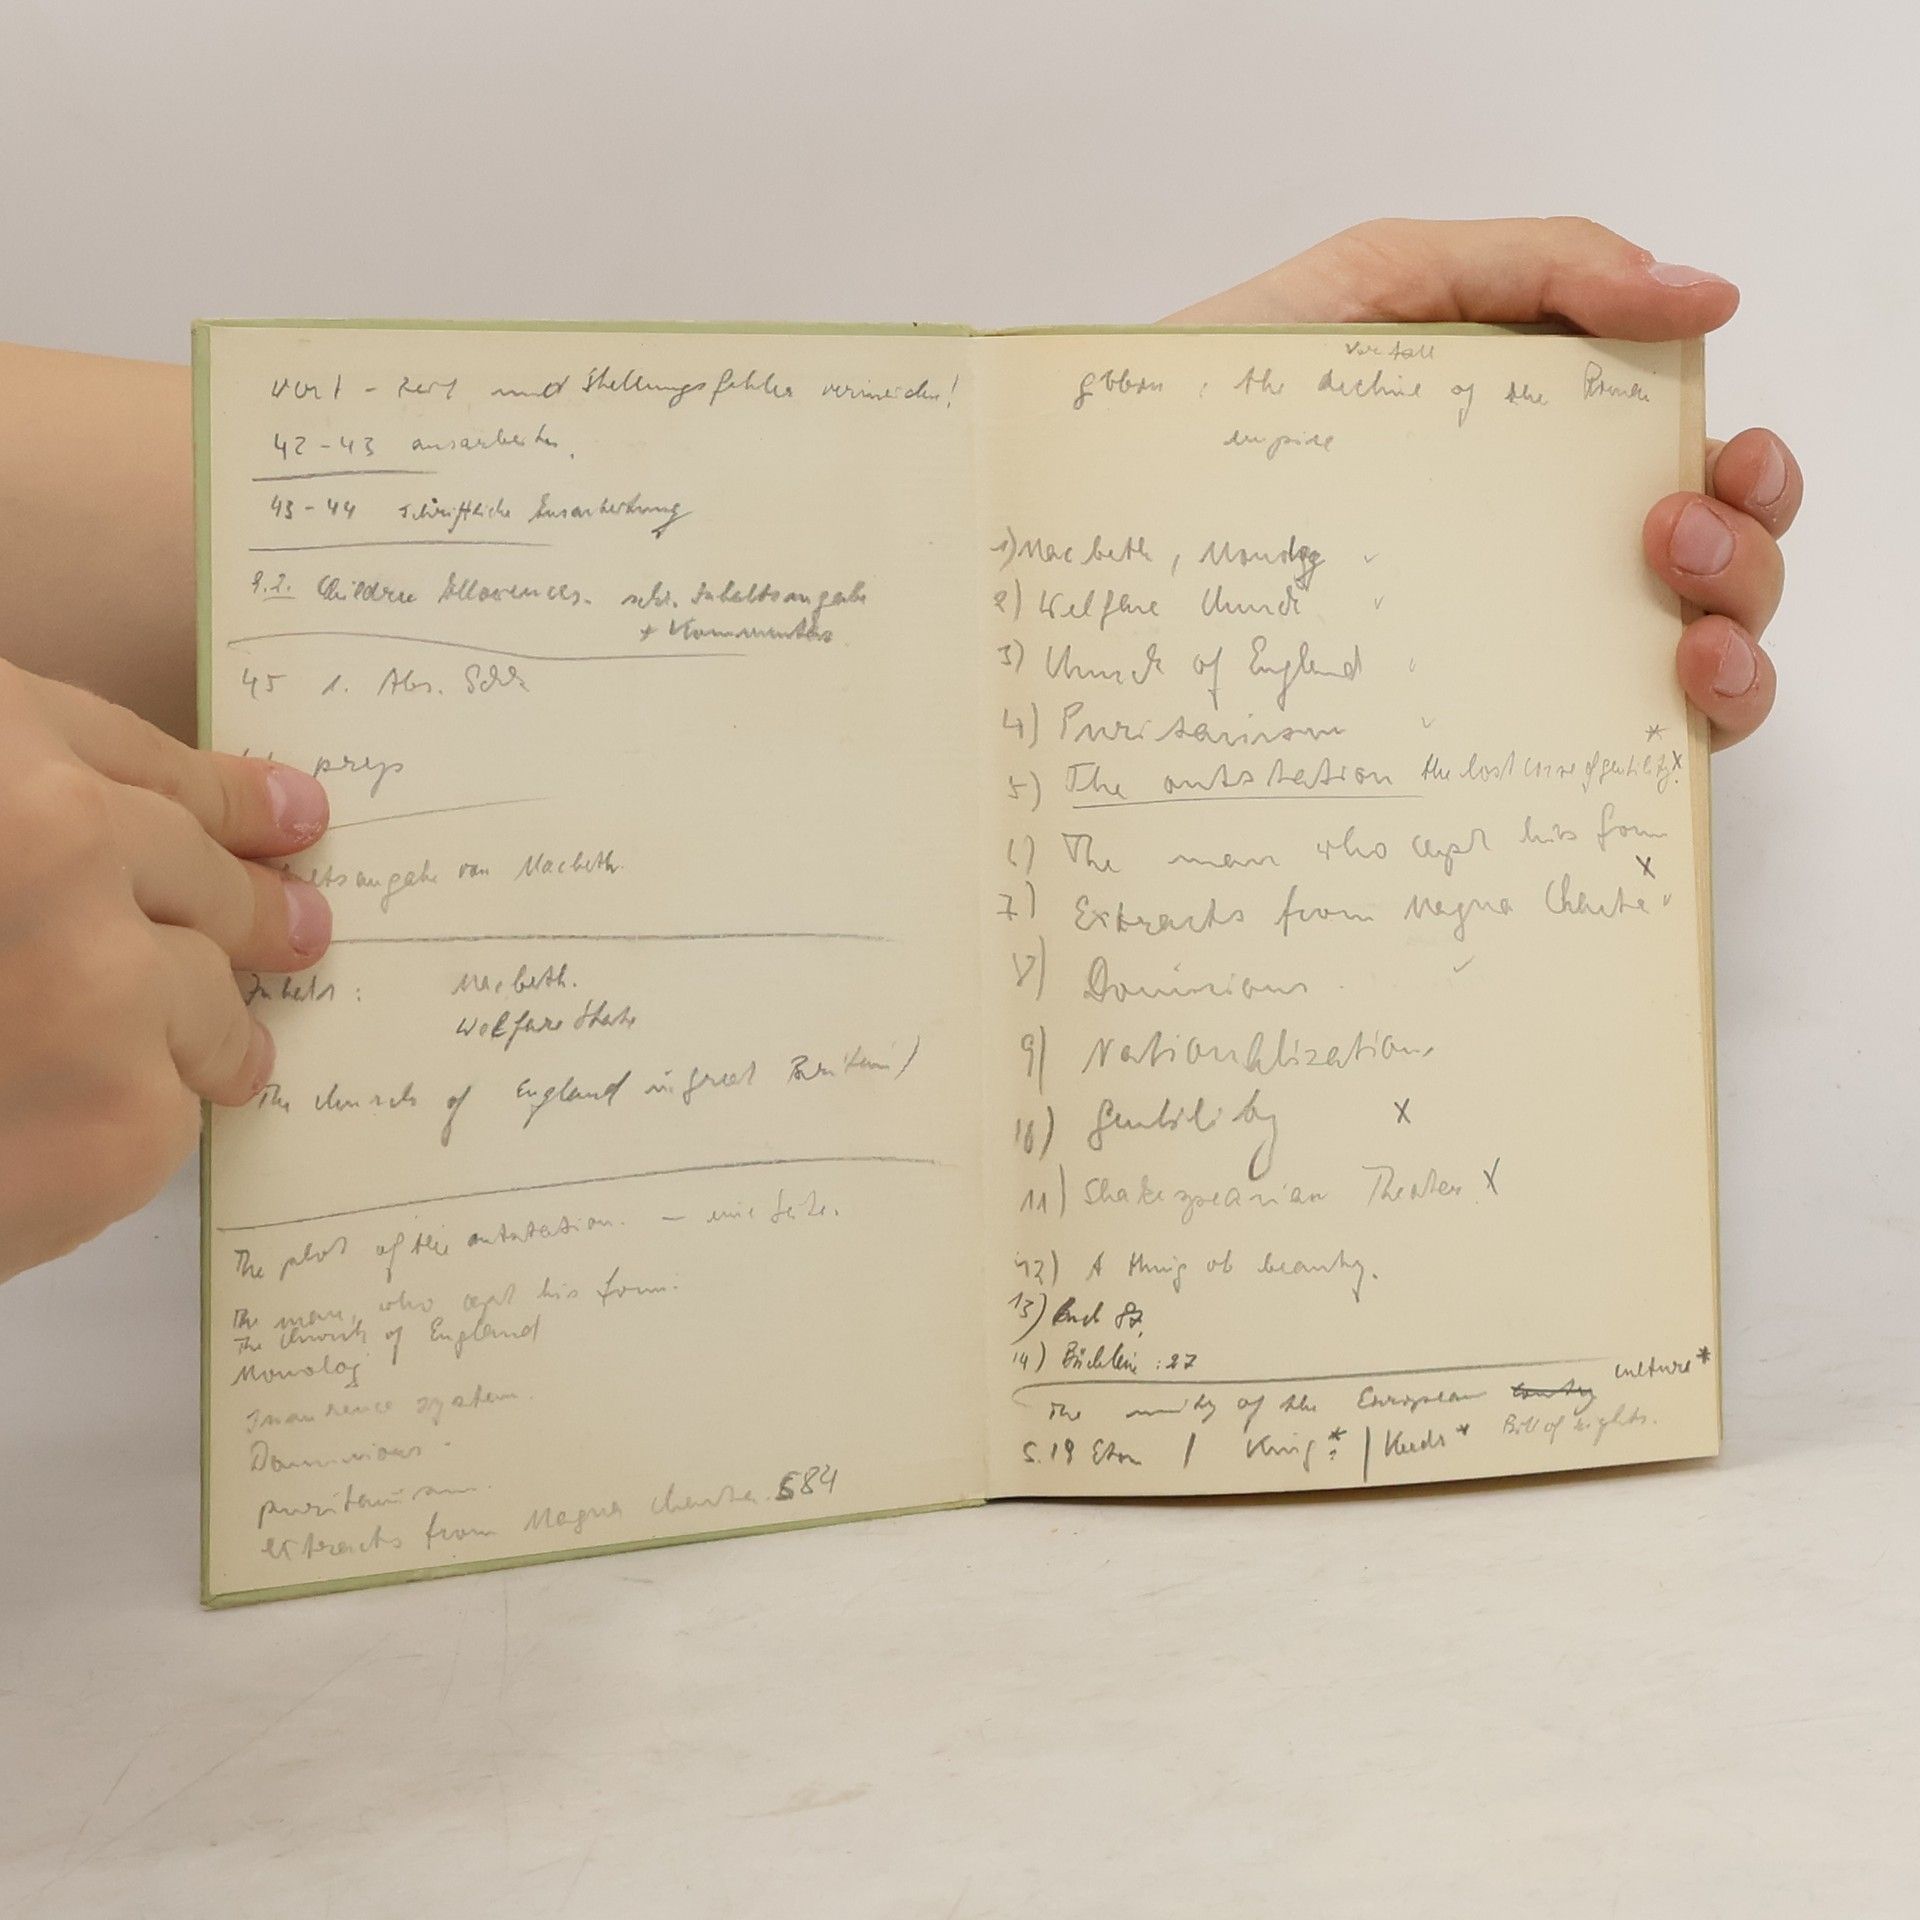 Wort - Zeit und Stellungsfehler vermeiden!
42-43 ausarbeiten.
43-44 schriftliche Ausarbeitung
9.2. Children Allowences. schr. Inhaltsangabe
+ Kommentar
45 1. Abs.
prep
ltsangabe von Macbeth.
Inhalt: Macbeth.
Welfare State
The church of England in great Britain)
The plot of the outstation. - eine Seite.
The man, who cept his form.
The church of England
Monolog
Insurence system.
Dominions
puritanism.
extracts from Magna Charta. S84
Verfall
gibbon: the decline of the Roman
empire
1) Macbeth, Monolog
2) Welfare
3) Church of England
4) Puritanism
5) The outstation the lost of gentility x
6) The man who cept his form
7) Extracts from Magna Charta x
8) Dominions
9) Nationalization
10) Gentility x
11) Shakespearian Theater x
12) A thing of beauty.
13) 87.
14) Büchlein: 27
The unity of the European culture*
S.19 Eton / King*: / * Bill of rights.